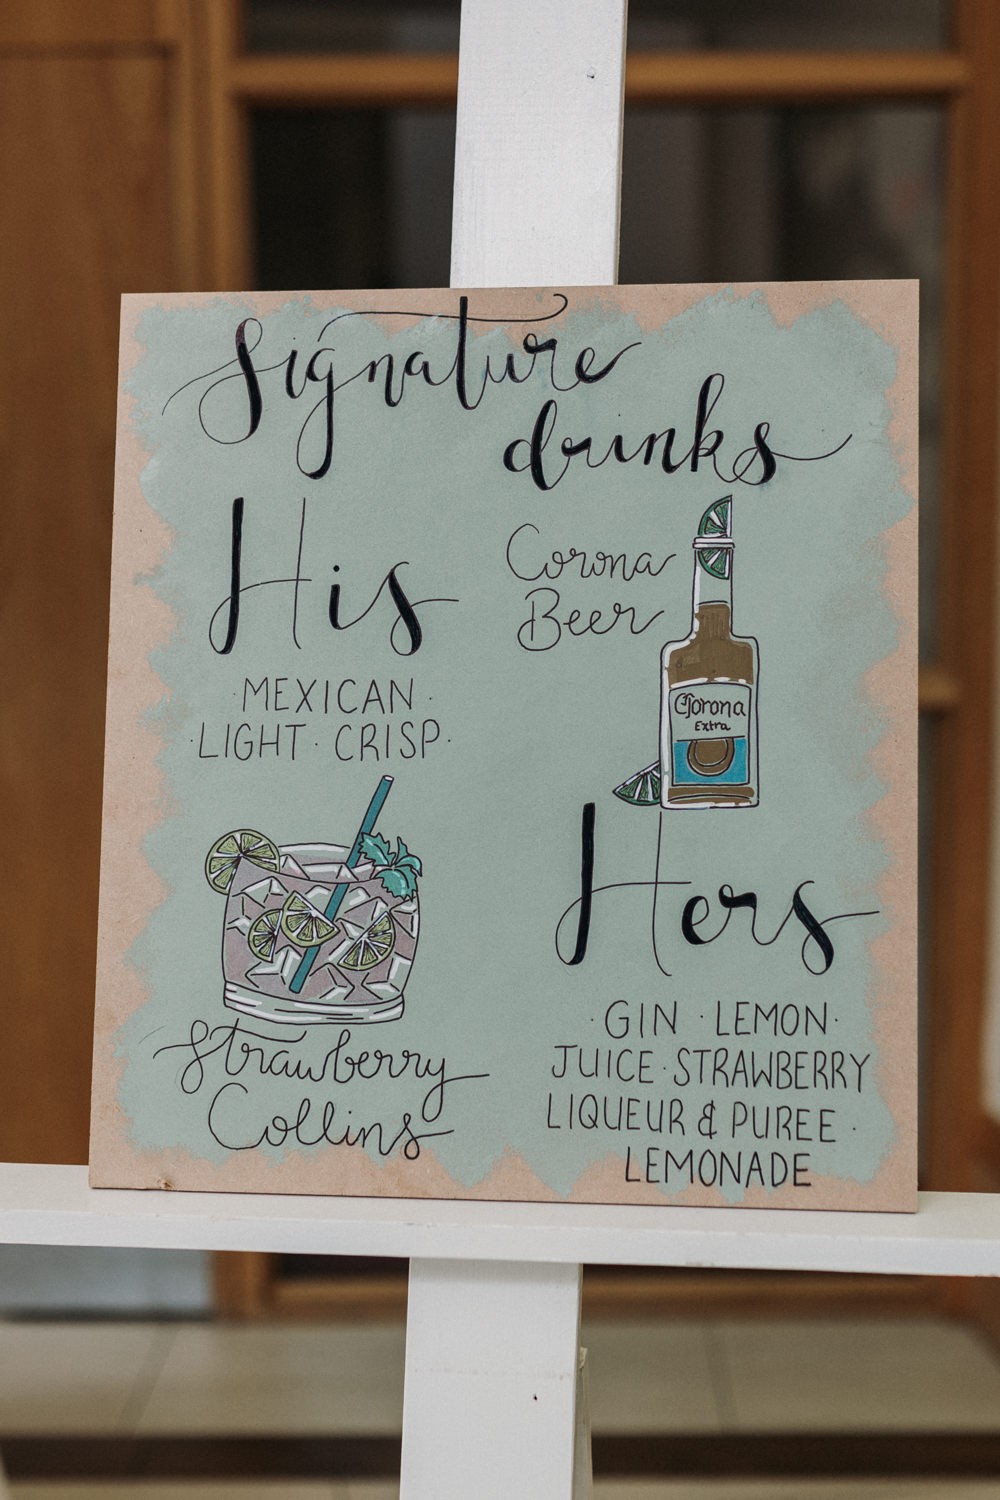 Signature
drinks
His
Corona
Beer
·MEXICAN·
·LIGHT·CRISP·
Corona
Extra
Hers
·GIN·LEMON·
JUICE·STRAWBERRY
LIQUEUR & PUREE·
LEMONADE
Strawberry
Collins